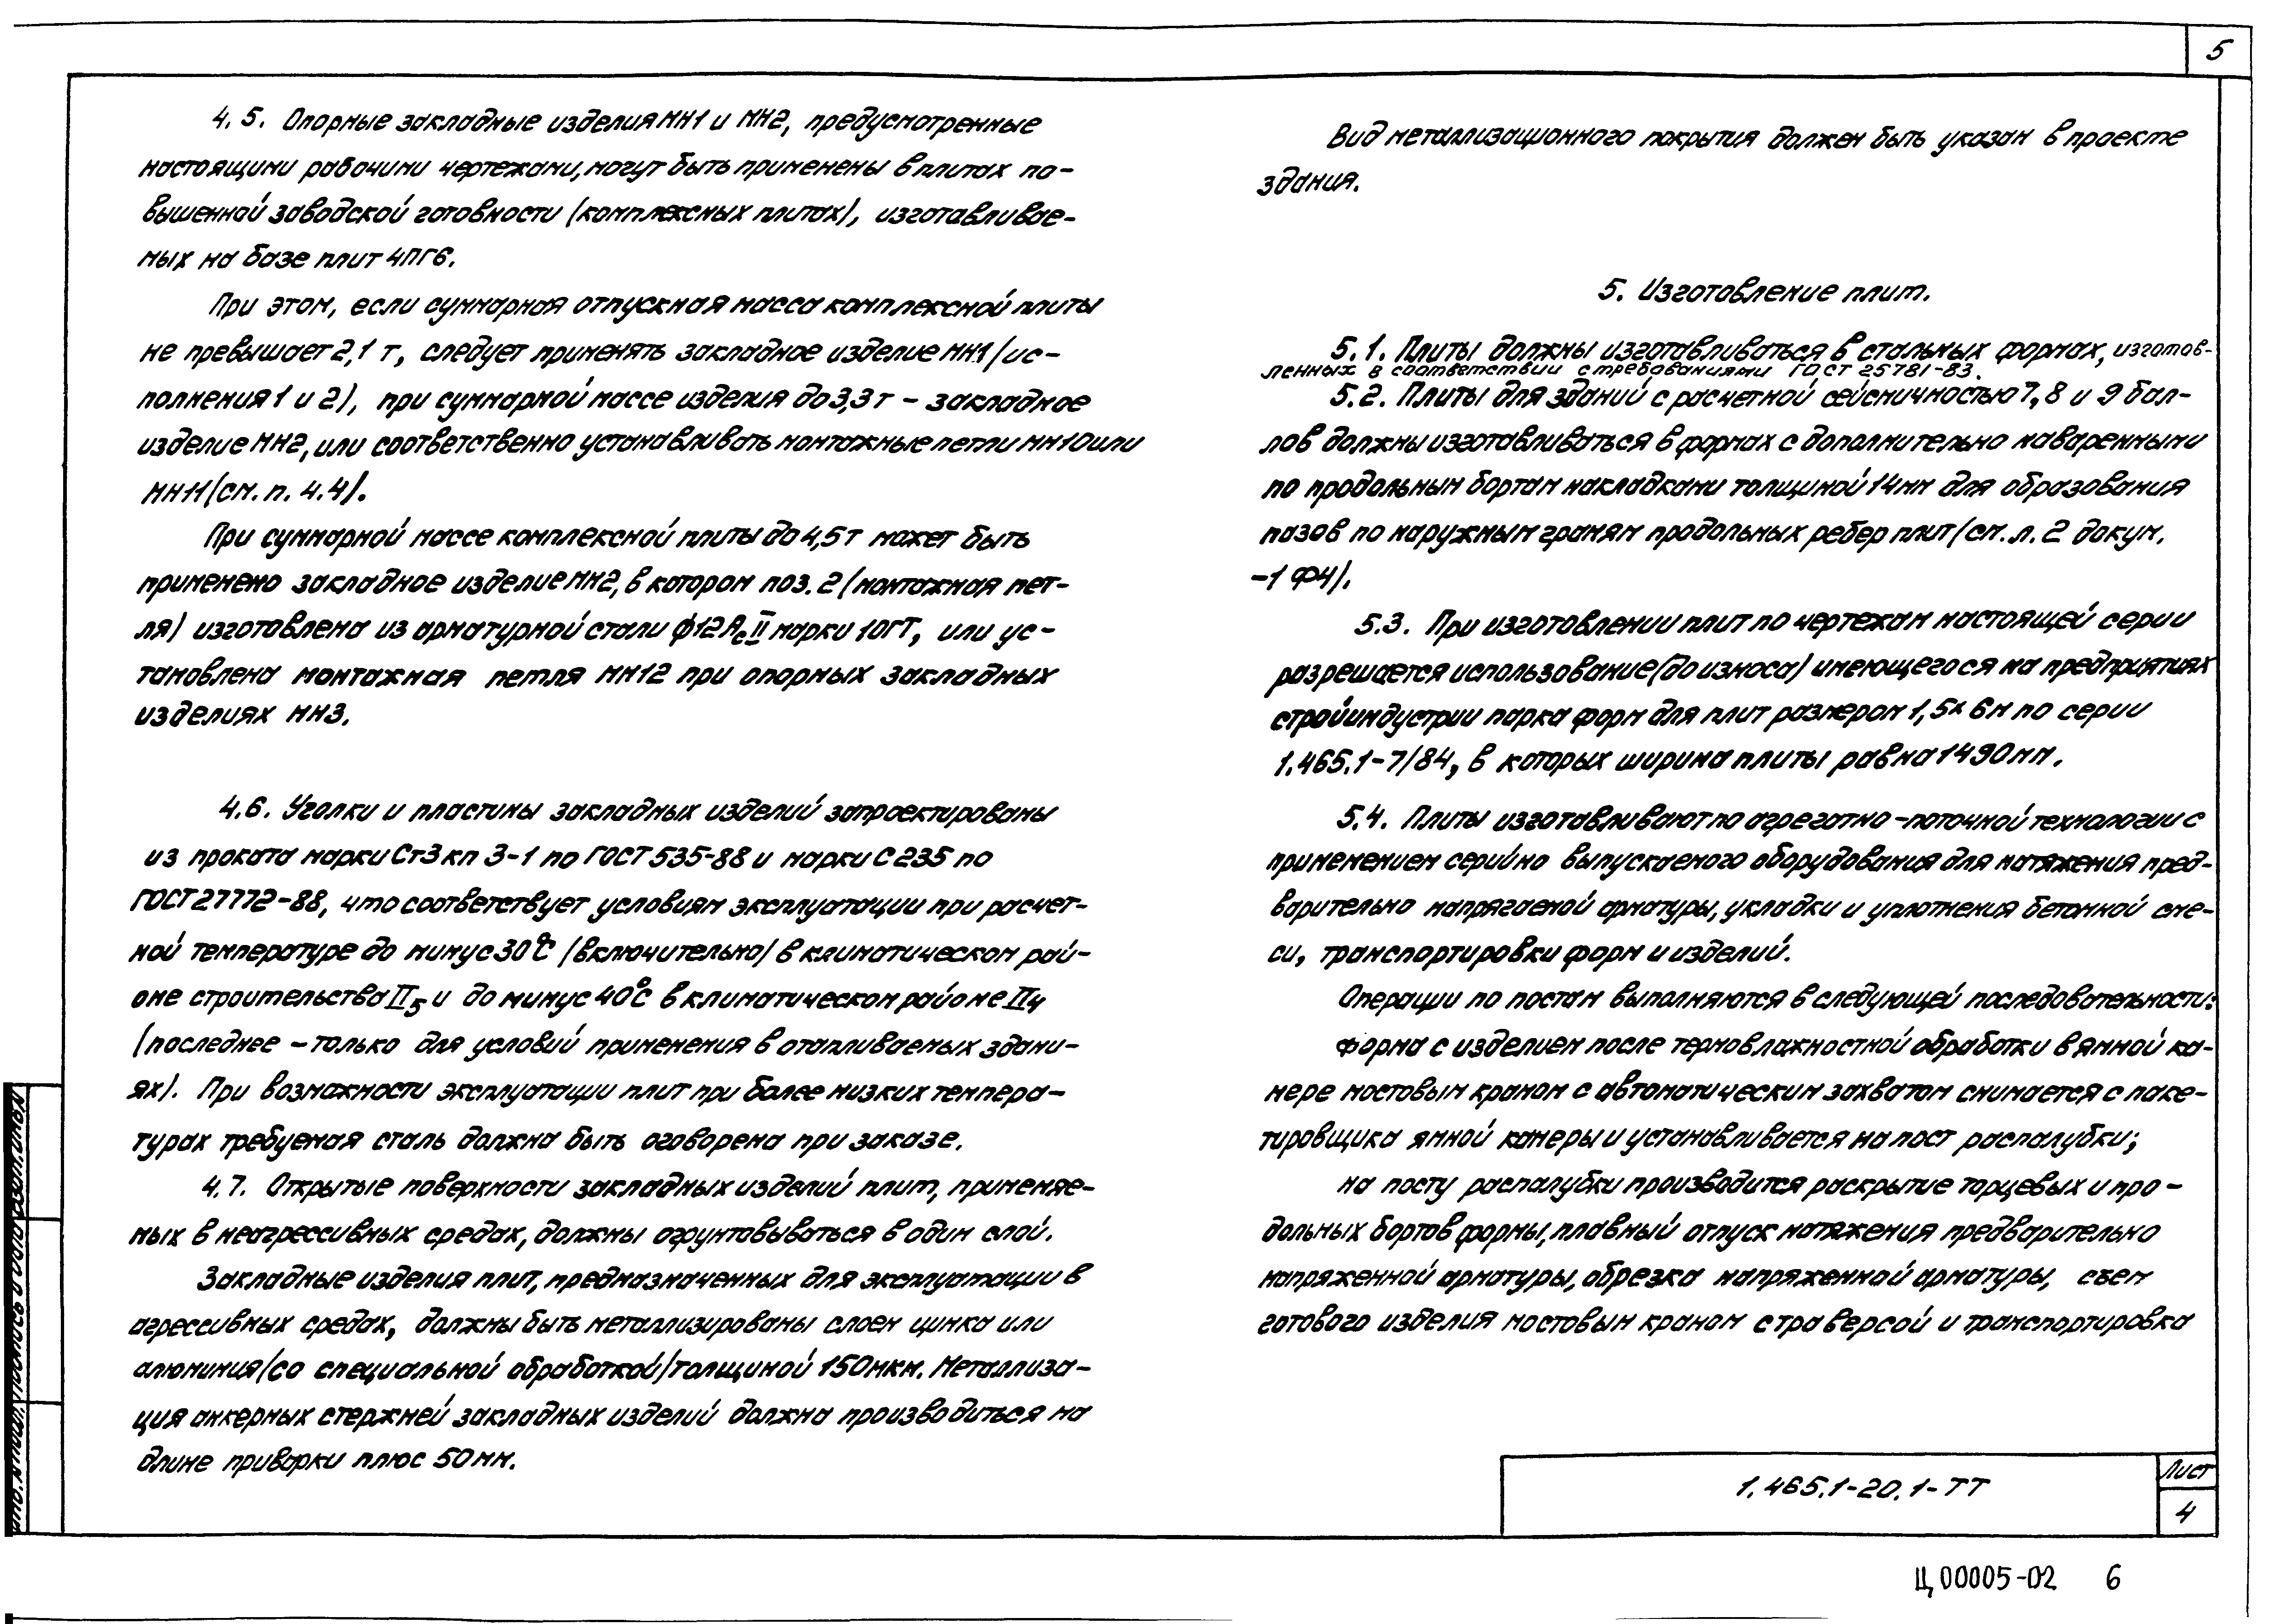 5
4.5. Опорные закладные изделия МН1 и МН2, предусмотренные
настоящими рабочими чертежами, могут быть применены в плитах по-
вышенной заводской готовности (комплексных плитах), изготавливае-
мых на базе плит 4ПГ6.
При этом, если суммарная отпускная масса комплексной плиты
не превышает 2,1 т, следует применять закладное изделие МН1 (ис-
полнения 1 и 2), при суммарной массе изделия до 3,3 т – закладное
изделие МН2, или соответственно устанавливать монтажные петли МН10 или
МН11 (см. п. 4.4).
При суммарной массе комплексной плиты до 4,5 т может быть
применено закладное изделие МН2, в котором поз. 2 (монтажная пет-
ля) изготовлена из арматурной стали ф12АсII марки 10ГТ, или ус-
тановлена монтажная петля МН12 при опорных закладных
изделиях МН3.
4.6. Уголки и пластины закладных изделий запроектированы
из проката марки Ст3кп 3-1 по ГОСТ 535-88 и марки С235 по
ГОСТ 27772-88, что соответствует условиям эксплуатации при расчет-
ной температуре до минус 30°С (включительно) в климатическом рай-
оне строительства II5 и до минус 40°С в климатическом районе II4
(последнее – только для условий применения в отапливаемых здани-
ях). При возможности эксплуатации плит при более низких темпера-
турах требуемая сталь должна быть оговорена при заказе.
4.7. Открытые поверхности закладных изделий плит, применяе-
мых в неагрессивных средах, должны огрунтовываться в один слой.
Закладные изделия плит, предназначенных для эксплуатации в
агрессивных средах, должны быть металлизированы слоем цинка или
алюминия (со специальной обработкой) толщиной 150мкм. Металлиза-
ция анкерных стержней закладных изделий должна производиться на
длине приварки плюс 50мм.
Вид металлизационного покрытия должен быть указан в проекте
здания.
5. Изготовление плит.
5.1. Плиты должны изготавливаться в стальных формах, изготов-
ленных в соответствии с требованиями ГОСТ 25781-83.
5.2. Плиты для зданий с расчетной сейсмичностью 7, 8 и 9 бал-
лов должны изготавливаться в формах с дополнительно наваренными
по продольным бортам накладками толщиной 14мм для образования
пазов по наружным граням продольных ребер плит (см. л. 2 докум.
-1 Ф4).
5.3. При изготовлении плит по чертежам настоящей серии
разрешается использование (до износа) имеющегося на предприятиях
стройиндустрии парка форм для плит размером 1,5х6м по серии
1.465.1-7/84, в которых ширина плиты равна 1490мм.
5.4. Плиты изготавливают по агрегатно-поточной технологии с
применением серийно выпускаемого оборудования для натяжения пред-
варительно напрягаемой арматуры, укладки и уплотнения бетонной сме-
си, транспортировки форм и изделий.
Операции по постам выполняются в следующей последовательности:
форма с изделием после термовлажностной обработки в ямной ка-
мере мостовым краном с автоматическим захватом снимается с паке-
тировщика ямной камеры и устанавливается на пост распалубки;
на посту распалубки производится раскрытие торцевых и про-
дольных бортов формы, плавный отпуск натяжения предварительно
напряженной арматуры, обрезка напряженной арматуры, съем
готового изделия мостовым краном с траверсой и транспортировка
Инв. № подл. Подпись и дата Взам. инв. №
1.465.1-20.1-ТТ
Лист
4
Ц00005-02 6